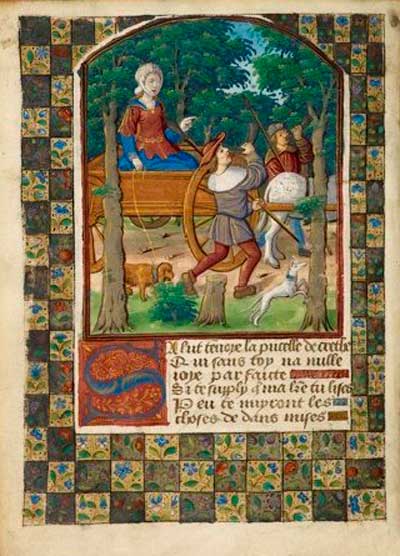 SAlut tendre la pucelle de crethe
Qui sans toy na nulle
ioye parfaicte
Si te suply q̃ ma lr̃e tu lises
Peu te nuyront les
choses de dans mises